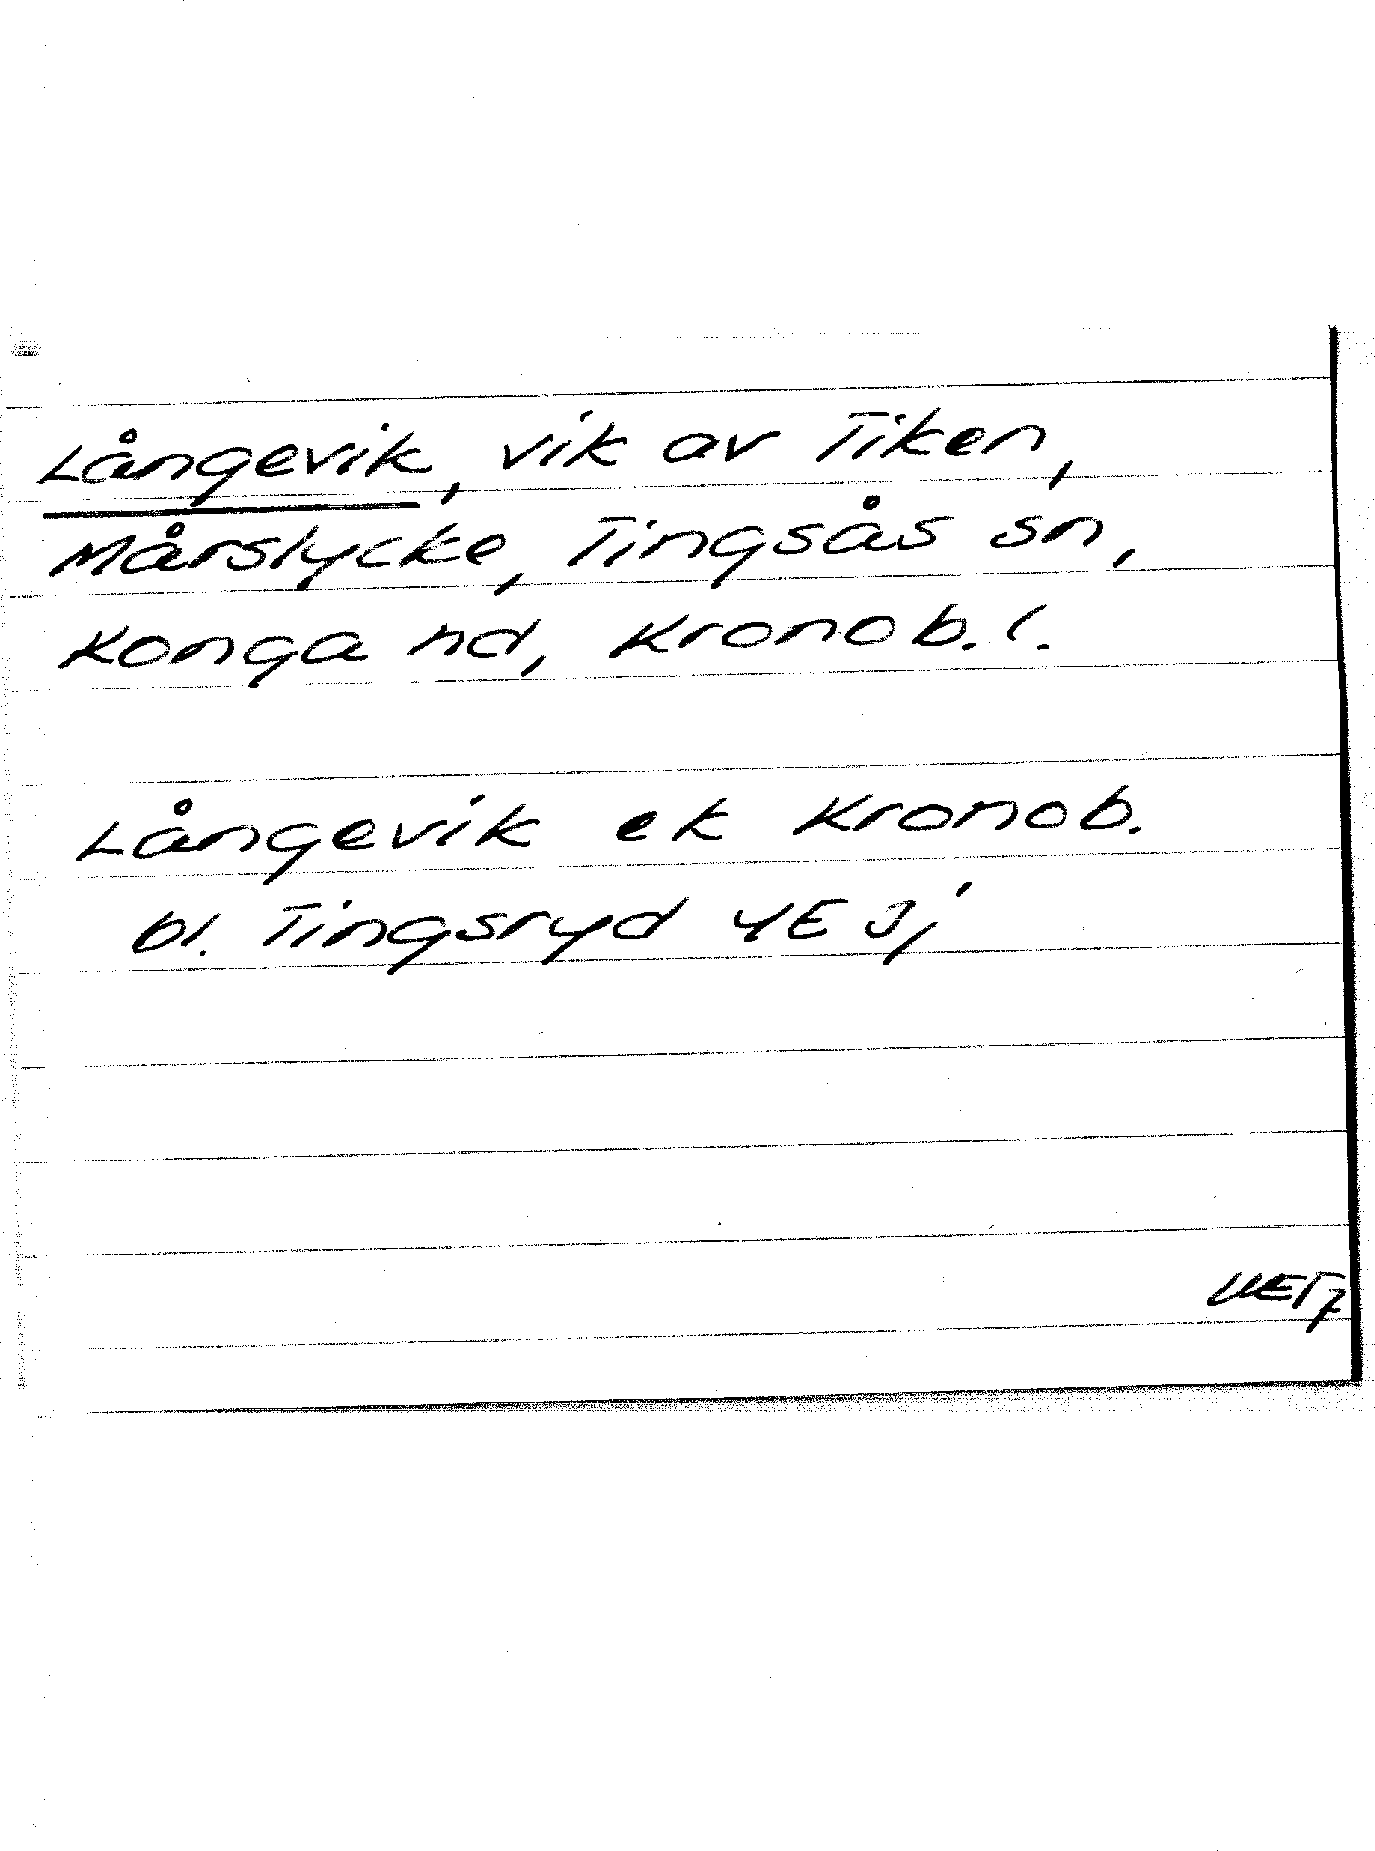 Långevik, vik av Tiken,
Mårslycke, Tingsås sn,
Konga hd, Kronob. l.
Långevik ek Kronob.
bl. Tingsryd 4E Jj